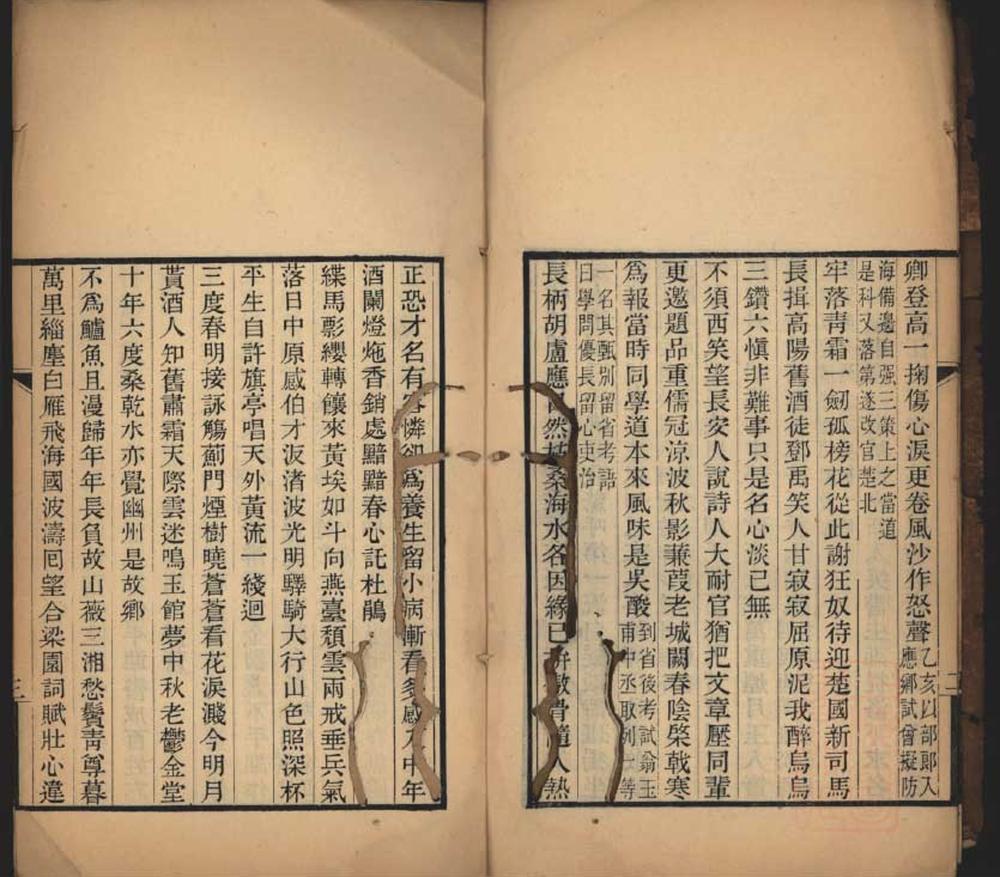 卿登高一掬傷心淚更卷風沙作怒聲乙亥以部郎入應鄉試曾擬防
海備邊自强三策上之當道是科又落第遂改官楚北
牢落靑霜一劒孤榜花從此謝狂奴待迎楚國新司馬
長揖高陽舊酒徒鄧禹笑人甘寂寂屈原泥我醉烏烏
三鑽六愼非難事只是名心淡已無
不須西笑望長安人說詩人大耐官猶把文章壓同輩
更邀題品重儒冠涼波秋影蒹葭老城闕春陰棨戟寒
爲報當時同學道本來風味是吳酸到省後考試翁玉甫中丞取列一等
一名其甄別留省考語曰學問優長留心吏治
長柄胡盧應然桑海水名因緣已骨隨人熱
正恐才名有客憐爲養生留小病漸看多感入中年
酒闌燈灺香銷處黯黯春心託杜鵑
緤馬影纓轉饟來黃埃如斗向燕臺頹雲兩戒垂兵氣
落日中原感伯才汳渚波光明驛騎大行山色照深杯
平生自許旗亭唱天外黃流一綫迴
三度春明接詠觴薊門煙樹曉蒼蒼看花淚濺今明月
貰酒人知舊肅霜天際雲迷鳴玉館夢中秋老鬱金堂
十年六度桑乾水亦覺幽州是故鄉
不爲鱸魚且漫歸年年長負故山薇三湘愁鬢靑尊暮
萬里緇塵白雁飛海國波濤囘望合梁園詞賦壯心違
二
三